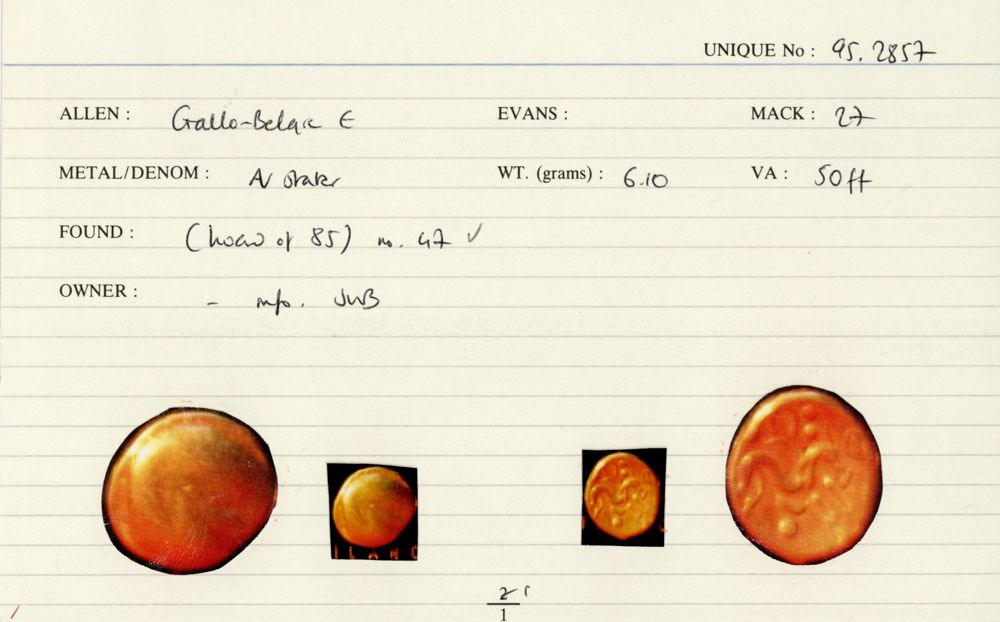 UNIQUE No : 95.2857
ALLEN : Gallo-Belgic E EVANS : MACK : 27
METAL/DENOM : AV stater WT. (grams) : 6.10 VA : 50ff
FOUND : (hoard of 85) no. 47 ✓
OWNER : - info. JWB
ILANO
2
1